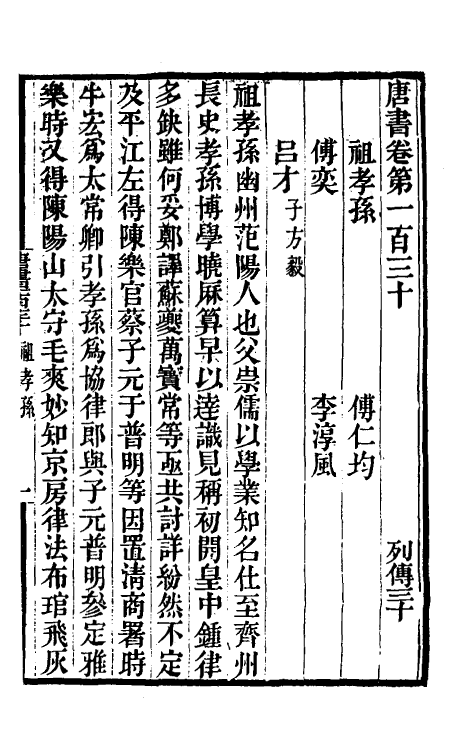 唐書卷第一百三十 列傳三十
祖孝孫 傅仁均
傅奕 李淳風
呂才 子方毅
祖孝孫幽州范陽人也父崇儒以學業知名仕至齊州
長史孝孫博學曉厤算早以逹識見稱初開皇中鍾律
多缺雖何妥鄭譯蘇夔萬寶常等亟共討詳紛然不定
及平江左得陳樂官蔡子元于普明等因置淸商署時
牛宏爲太常卿引孝孫爲協律郎與子元普明參定雅
樂時又得陳陽山太守毛爽妙知京房律法布琯飛灰
祖孝孫 一